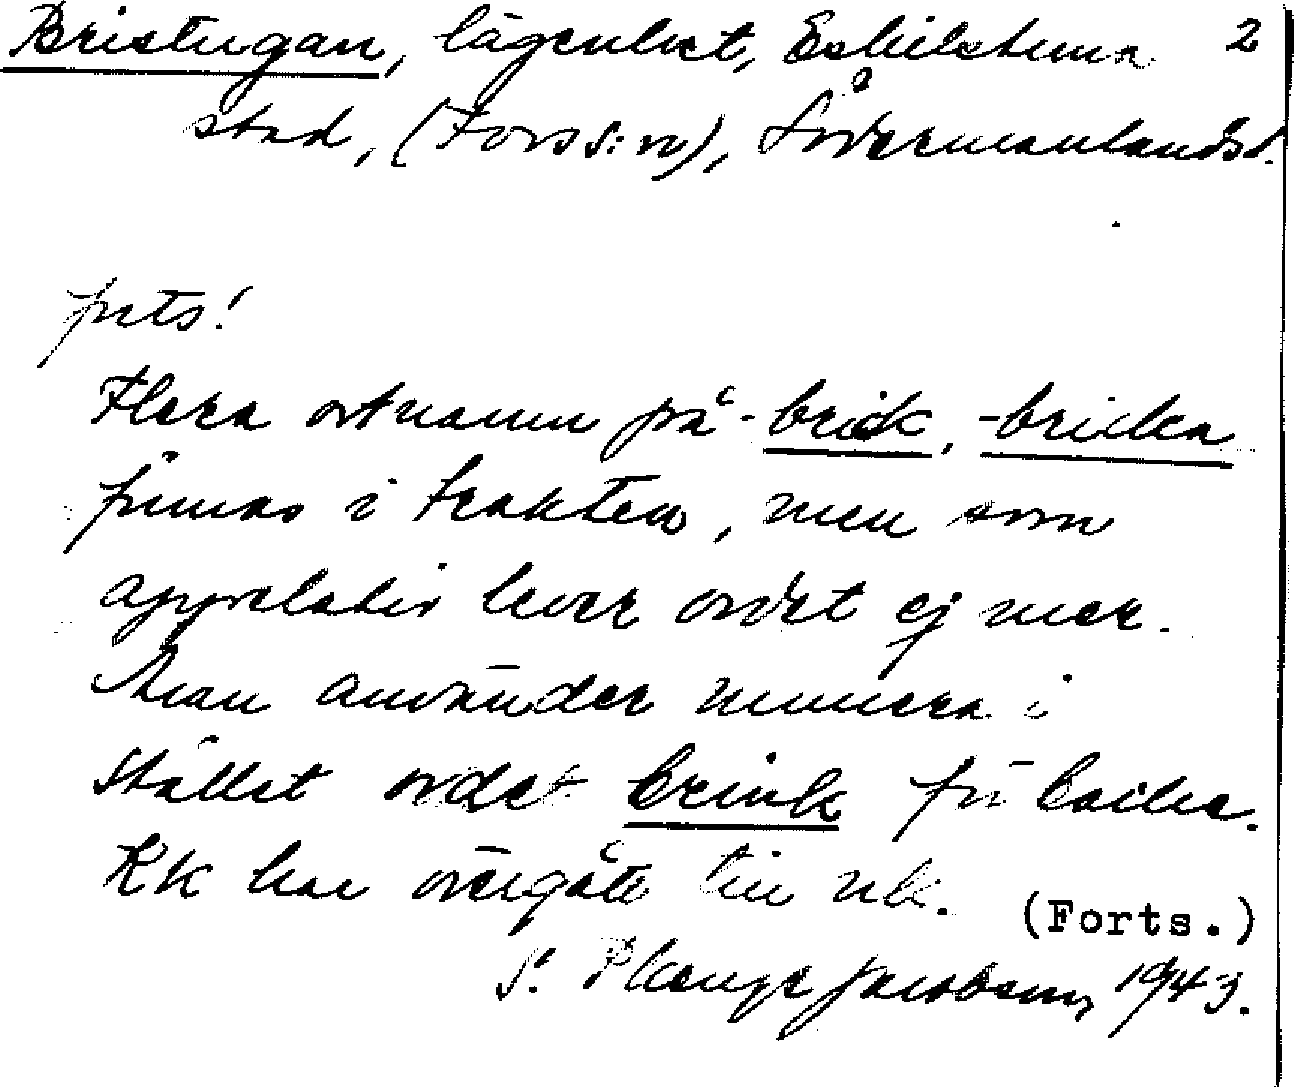 Bristugan, lägenhet, Eskilstuna 2
stad, (Fors s:n), Södermanlands l.
forts!
Flera ortnamn på -brick, -bricka
finnas i trakten, men som
appelativ lever ordet ej mer.
Man använder numera i
stället ordet brink för backe.
KK har övergått till nk. (Forts.)
S. Plenge Jacobson, 1943.